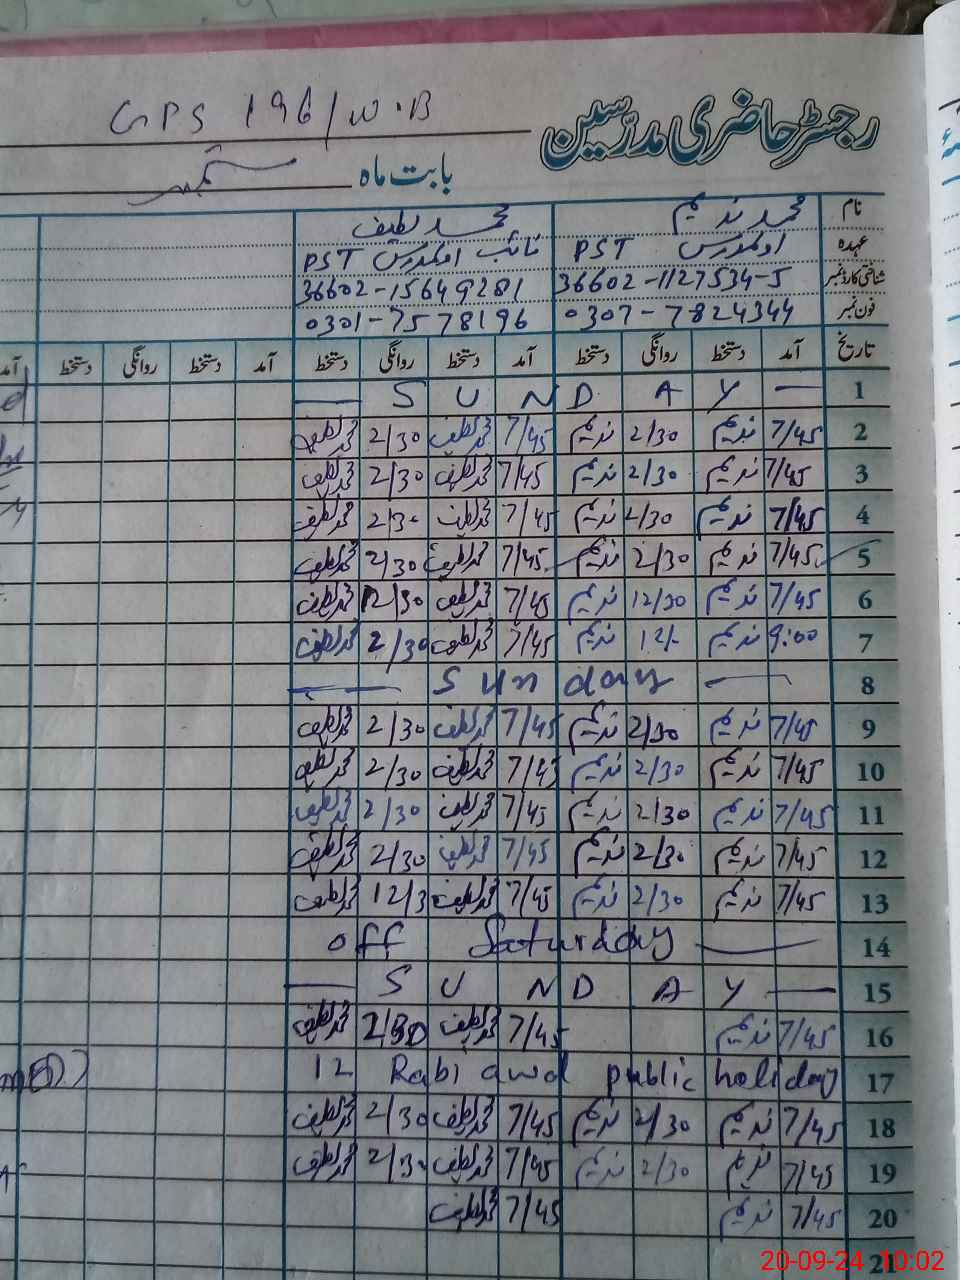 رجسٹر حاضری مدرسین GPS 196/W.B
بابت ماہ ستمبر
نام محمد ندیم محمد لطیف
عہدہ اول مدرس PST نائب اول مدرس PST
شناختی کارڈ نمبر 36602-1127534-5 36602-15649281
فون نمبر 0307-7824344 0301-7578196
تاریخ آمد دستخط روانگی دستخط آمد دستخط روانگی دستخط آمد دستخط روانگی دستخط آمد
1 SUNDAY
2 7/45 ندیم 2/30 ندیم 7/45 محمد لطیف 2/30 محمد لطیف
3 7/45 ندیم 2/30 ندیم 7/45 محمد لطیف 2/30 محمد لطیف
4 7/45 ندیم 2/30 ندیم 7/45 محمد لطیف 2/30 محمد لطیف
5 7/45 ندیم 2/30 ندیم 7/45 محمد لطیف 2/30 محمد لطیف
6 7/45 ندیم 12/30 ندیم 7/45 محمد لطیف 12/30 محمد لطیف
7 9:00 ندیم 12/- ندیم 7/45 محمد لطیف 2/30 محمد لطیف
8 Sunday
9 7/45 ندیم 2/30 ندیم 7/45 محمد لطیف 2/30 محمد لطیف
10 7/45 ندیم 2/30 ندیم 7/45 محمد لطیف 2/30 محمد لطیف
11 7/45 ندیم 2/30 ندیم 7/45 محمد لطیف 2/30 محمد لطیف
12 7/45 ندیم 2/30 ندیم 7/45 محمد لطیف 2/30 محمد لطیف
13 7/45 ندیم 2/30 ندیم 7/45 محمد لطیف 12/3 محمد لطیف
14 off Saturday
15 SUNDAY
16 7/45 ندیم 7/45 محمد لطیف 2/30 محمد لطیف
17 12 Rabi awal public holiday
18 7/45 ندیم 2/30 ندیم 7/45 محمد لطیف 2/30 محمد لطیف
19 7/45 ندیم 2/30 ندیم 7/45 محمد لطیف 2/30 محمد لطیف
20 7/45 ندیم 7/45 محمد لطیف
21
20-09-24 10:02